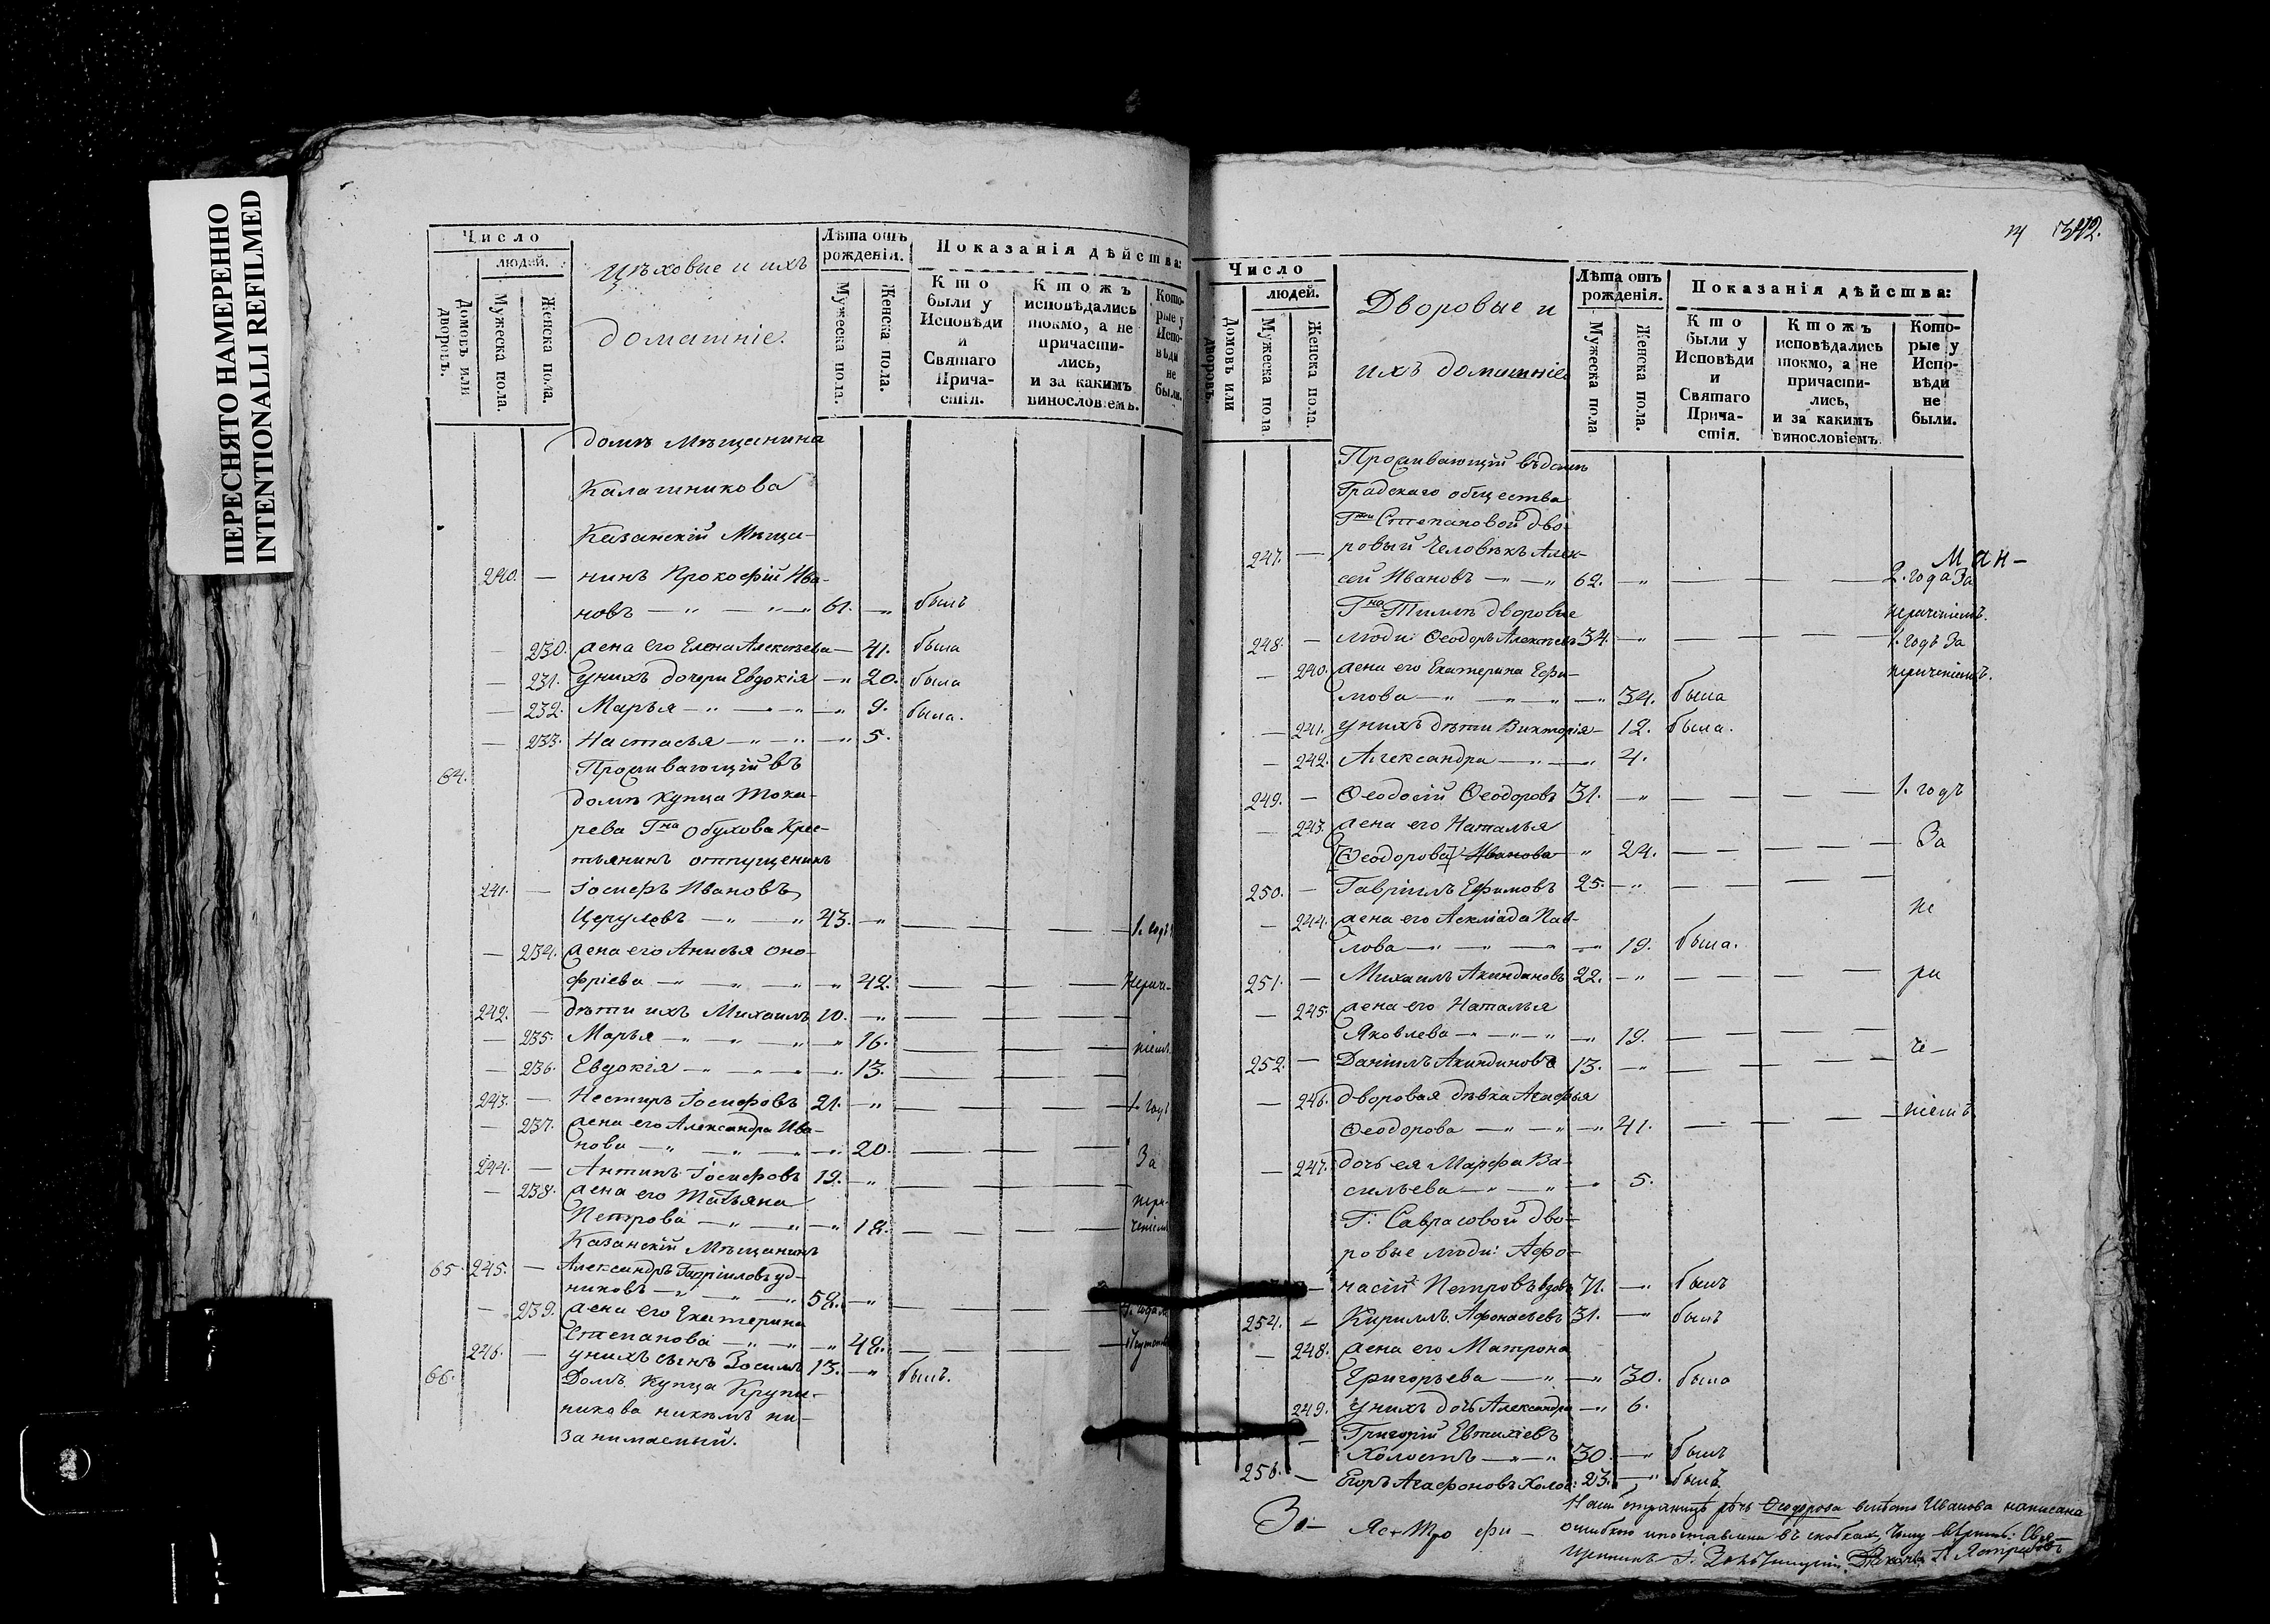 ПЕРЕСНЯТО НАМЕРЕННО
INTENTIONALLI REFILMED
Число
людей.
Домовъ или дворовъ.
Мужеска пола.
Женска пола.
Цѣховые и ихъ
домашніе.
Лѣта отъ рожденія.
Мужеска пола.
Женска пола.
Показанія дѣйства:
Кто были у Исповѣди и Святаго Причастія.
Ктожъ исповѣдались токмо, а не причастились, и за какимъ винословіемъ.
Которые у Исповѣди не были.
домѣ Мѣщанина
Калашникова
Казанскій Мѣща-
240. — нинъ Прокофій Ива-
новъ — 61. — былъ
— 230. жена его Елена Алексѣева — 41. была
— 231. у нихъ дочери Евдокія — 20. была
— 232. Марья — 9. была.
— 233. Настасья — 5.
64. Проживающій въ
домѣ купца Тока-
рева Гна Обухова Крес-
тьянинъ отпущеникъ
241. — Іосифъ Ивановъ
43. — 1. годъ
— 234. жена его Анисья Оно-
фріева — 42. нераче-
242. — дѣти ихъ Михаилъ 10. —
— 235. Марья — 16. ніемъ
— 236. Евдокія — 13.
243. — Нестеръ Іосифовъ 21. — 1. годъ
— 237. жена его Александра Ива-
нова — 20. За
244. — Антипъ Іосифовъ 19. —
— 238. жена его Татьяна нера-
Петрова — 18. ченіемъ
Казанскій Мѣщанинъ
65. 245. — Александръ Гавріиловъ
никовъ — 58. —
— 239. жена его Екатерина
Степанова — 48.
246. — у нихъ сынъ Зосима 13. — былъ.
66. Домъ купца Крупе-
никова никѣмъ не-
занимаемый.
342.
Число
людей.
Домовъ или дворовъ
Мужеска пола
Женска пола.
Дворовые и
ихъ домашніе
Лѣта отъ рожденія.
Мужеска пола
Женска пола.
Показанія дѣйства:
Кто были у Исповѣди и Святаго Причастія.
Ктожъ исповѣдались токмо, а не причастились, и за какимъ винословіемъ
Которые у Исповѣди не были.
Проживающій въ домѣ
Градскаго общества
Гжи Степановой дво-
247. — ровый человѣкъ Алек-
ман-
сѣй Ивановъ — 62. — 2. года За
Гна Тиммъ дворовые нераченіемъ.
248. — люди: Ѳеодоръ Алексѣевъ 34. — 1. годъ За
— 240. жена его Екатерина Ефи- нераченіемъ.
мова — 34. была
— 241. у нихъ дѣти Викторія — 12. была.
— 242. Александра — 4.
249. — Ѳеодосій Ѳеодоровъ 31. — 1. годъ
— 243. жена его Наталья За
[Ѳеодорова] Иванова — 24.
250. — Гавріилъ Ефимовъ 25. —
— 244. жена его Асклiада Пав- не
лова — 19. была.
251. — Михаилъ Акиндиновъ 22. — ра
— 245. жена его Наталья
Яковлева — 19. че-
252. — Даніилъ Акиндиновъ 13. —
— 246. дворовая дѣвка Агафья ніемъ
Ѳеодорова — 41.
— 247. дочь ея Марфа Ва-
сильева — 5.
Г: Саврасовой дво-
ровые люди: Афо-
— насій Петровъ вдовъ 71. — былъ
254. — Кириллъ Афонасьевъ 31. — былъ
— 248. жена его Матрона
Григорьева — 30. была
249. у нихъ дочь Александра — 6.
— Григорій Евтихіевъ
Холостъ — 30 — былъ
256. — Егоръ Агафоновъ Холос: 23. — былъ
За- Яс+тро фи- На сей страницѣ рѣчь Ѳеодорова вмѣсто Иванова написана
ошибкою и поставлена въ скобкахъ, чему вѣримъ: Свя-
щенникъ